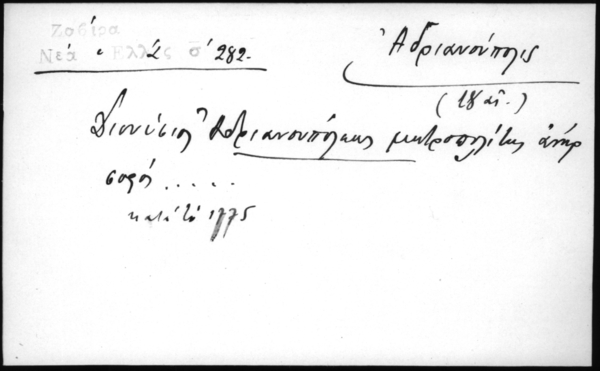 Ζαβίρα
Νέα Ἑλλὰς σ. 282.
Ἀδριανούπολις
(18 αἰ.)
Διονύσιος Ἀδριανουπόλεως μητροπολίτης ἀνὴρ
σοφός .....
κατὰ τὸ 1775